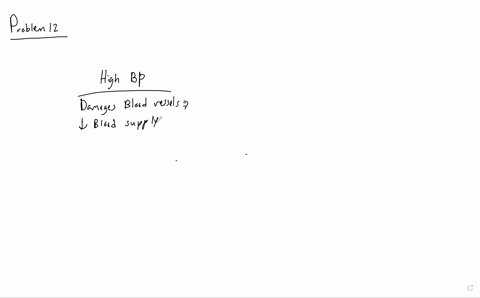 Problem 12
High BP
Damages Blood vessels →
↓ Blood supply